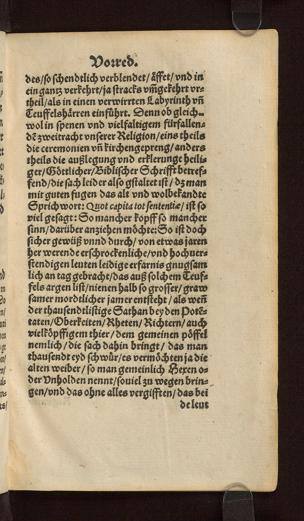 Vorred.
des/so schendtlich verblendet/äffet/vnd in
ein gantz verkehrt/ja stracks vmgekehrt vr-
theil/als in einen verwirrten Labyrinth vñ
Teuffelshärren einführt. Denn ob gleich-
wol in spenen vnd vielfaltigem fürfallen-
dẽ zweitracht vnserer Religion/eins theils
die ceremonien vñ kirchengepreng/anders
theils die außlegung vnd erklerunge heili-
ger/Göttlicher/Biblischer Schrifft betref-
fend/die sach leider also gstaltet ist/dz man
mit guten fugen das alt vnd wolbekandte
Sprichwort: Quot capita tot sententiæ/ist so
viel gesagt: So mancher kopff so mancher
sinn/darüber anziehen möchte: So ist doch
sicher gewüß vnnd durch/von etwas jaren
her werende erschrockenliche/vnd hochuer-
stendigen leuten leidige erfarnis gnugsam
lich an tag gebracht/das auß solchem Teuf-
fels argen list/nienen halb so grosser/graw
samer mordtlicher jamer entsteht/als weñ
der thausendlistige Sathan bey den Potẽ-
taten/Oberkeiten/Rheten/Richtern/auch
vielköpffigem thier/dem gemeinen pöffel
nemlich/die sach dahin bringt/das man
thausendt eyd schwür/es vermöchten ja die
alten weiber/so man gemeinlich Hexen o-
der Vnholden nennt/souiel zu wegen brin-
gen/vnd das ohne alles vergifften/das bei
de leut